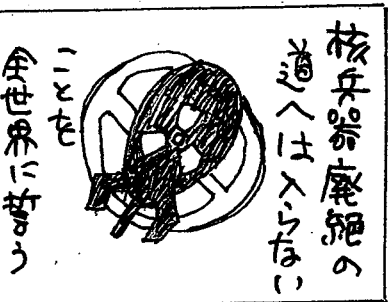 核兵器廃絶の
道へは入らない
ことを
全世界に誓う